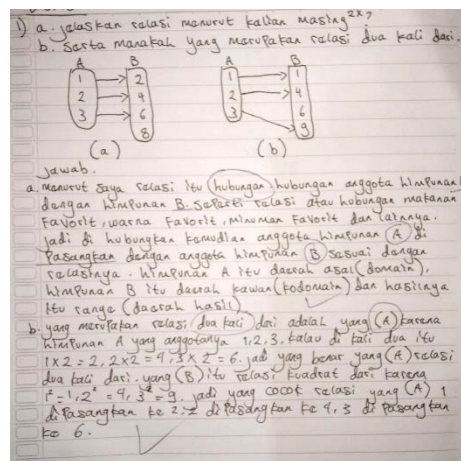 1) a. jelaskan relasi menurut kalian masing2x?
b. Serta manakah yang merupakan relasi dua kali dari.
A B A B
1 2 1 1
2 4 2 4
3 6 3 6
8 9
(a) (b)
Jawab.
a. menurut saya relasi itu hubungan, hubungan anggota himpunan
dengan himpunan B. Seperti relasi atau hubungan makanan
Favorit, warna Favorit, minuman Favorit dan lainnya.
Jadi di hubungkan kemudian anggota himpunan (A) di
Pasangkan dengan anggota himpunan (B) sesuai dengan
relasinya. himpunan A itu daerah asal (domain),
himpunan B itu daerah kawan (kodomain) dan hasilnya
itu range (daerah hasil)
b. yang merupakan relasi dua kali dari adalah yang (A) karena
himpunan A yang anggotanya 1, 2, 3. kalau di kali dua itu
1 x 2 = 2, 2 x 2 = 4, 3 x 2 = 6. jadi yang benar yang (A) relasi
dua kali dari. yang (B) itu relasi kuadrat dari karena
1² = 1, 2² = 4, 3² = 9. jadi yang cocok relasi yang (A) 1
di Pasangkan ke 2, 2 di Pasangkan ke 4, 3 di Pasangkan
ke 6.